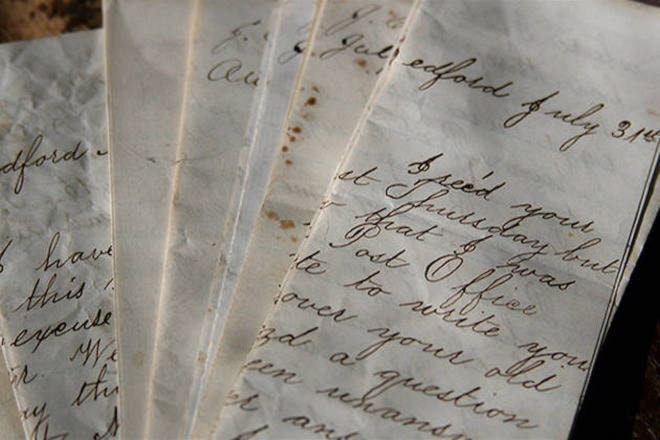 dford
I have
this
excuse
We
J.
Au
J.
J. Jul
edford July 31st
I rec'd your
st Thursday but
that I was
Post Office
te to write you
over your old
d a question
een unans